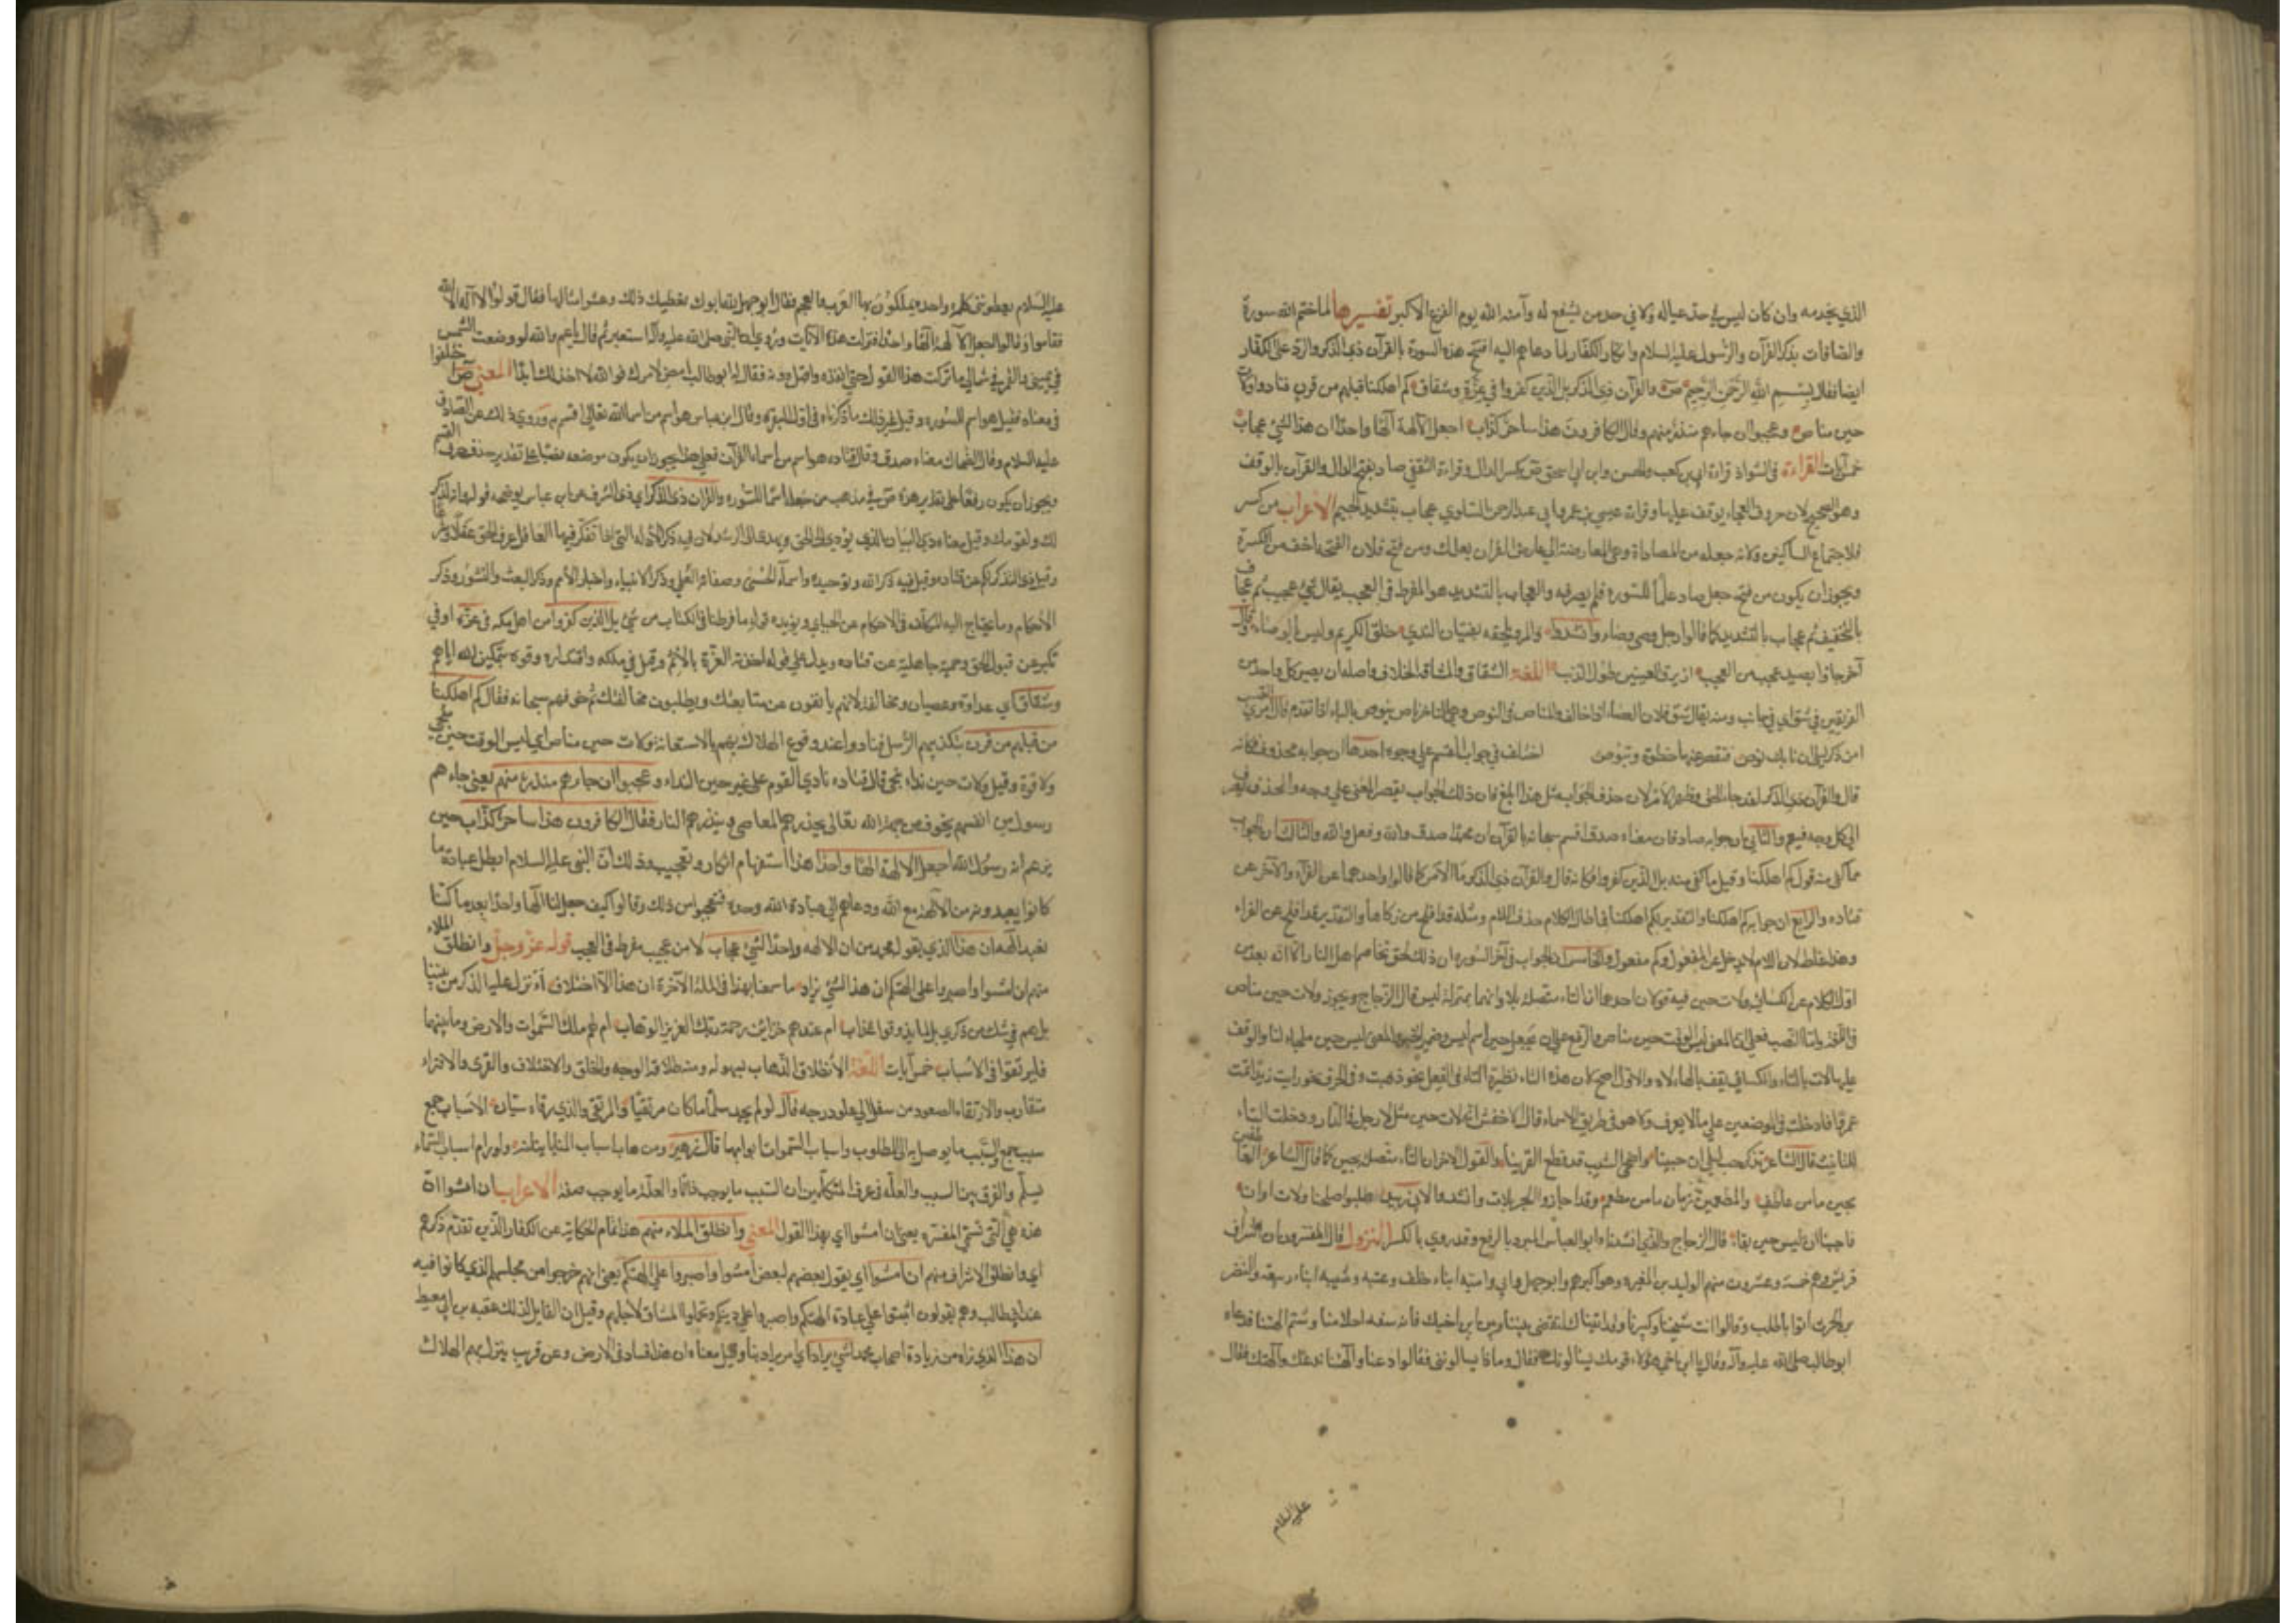 الذي يخدمه وان كان ليس في حد عياله ولا في حد من يشفع له وآمنه الله يوم الفزع الاكبر تفسيرها لما ختم الله سورة
والصافات بذكر القرآن والرسول عليه السلام وانكار الكفار لما دعاهم اليه افتتح هذه السورة بالقرآن ذي الذكر والرد على الكفار
ايضا فقال بسم الله الرحمن الرحيم ص والقرآن ذي الذكر بل الذين كفروا في عزة وشقاق كم اهلكنا قبلهم من قرن فنادوا ولات
حين مناص وعجبوا ان جاءهم منذر منهم وقال الكافرون هذا ساحر كذاب اجعل الآلهة الها واحدا ان هذا لشئ عجاب
خمس آيات القراءة في الشواذ قراءة ابي بن كعب والحسن وابن ابي اسحق ص بكسر الدال وقراءة الثقفي صاد بفتح الدال والقرآن بالوقف
وهو الصحيح لان حروف الهجاء يوقف عليها وقراءة عيسى بن عمرو ابي عبد الرحمن السلوي عجاب بتشديد الجيم الاعراب من كسر
فلاجتماع الساكنين ولانه جعله من المصاداة وهي المعارضة اي عارض القرآن بعملك ومن فتح فلان الفتحة اخف من الكسرة
ويجوز ان يكون من فتح جعل صاد علما للسورة فلم يصرفه والعجاب بالتشديد هو المفرط في العجب يقال شئ عجيب ثم عجاب
بالتخفيف ثم عجاب بالتشديد كما قالوا رجل وضئ وضاء وانشدوا والمرء يلحقه بفتيان الندى خلق الكريم وليس بالوضاء وقال
آخر جاؤا بصيد عجب من العجب ازيرق العينين طوال الذنب اللغة الشقاق والمشاقة الخلاف واصله ان يصير كل واحد من
الفريقين في شق اي في جانب ومنه يقال شق فلان العصا اذا خالف والمناص من النوص وهو التاخر ناص ينوص بالباء اذا تقدم قال امرئ القيس
امن ذكر ليلى ان نأتك تنوص فتقصر عنها خطوة وتبوص اختلف في جواب القسم على وجوه احدها ان جوابه محذوف فكانه
قال والقرآن ذي الذكر لقد جاء الحق وظهر الامر لان حذف الجواب مثل هذا ابلغ فان ذلك الجواب يقصر المعنى على وجه والحذف يصرف
الى كل وجه فيعم والثاني ان جوابه صاد فان معناه صدق اقسم سبحانه بالقرآن ان محمدا صدق والله وفعل والله والثالث ان الجواب
مما كفى منه قوله كم اهلكنا وقيل ما كفى منه بل الذين كفروا فكانه قال والقرآن ذي الذكر ما الامر كما قالوا واحدهما عن الفراء والآخر عن
قتاده والرابع ان جوابه كم اهلكنا والتقدير لكم اهلكنا فلما طال الكلام حذف اللام ومثله قد افلح من زكاها والتقدير لقد افلح عن الفراء
وهذا غلط لان اللام لا يدخل على المفعول وكم مفعول والخامس ان الجواب في آخر السورة ان ذلك لحق تخاصم اهل النار الا انه بعد من
اول الكلام عن الكسائي ولات حين فيه قولان احدهما ان التاء متصلة بلا وانهما بمنزلة ليس قال الزجاج ويجوز ولات حين مناص
في اللغة فاما النصب فعلى ان المعنى ليس الوقت حين مناص والرفع على ان يجعل حين اسم ليس وضمير الخبر والمعنى ليس حين ملجاء لنا والوقف
عليها لات بالتاء والكسائي يقف بالهاء لاه والاول اصح لان هذه التاء نظيرة التاء في الفعل نحو ذهبت وفي الحرف نحو رايت زيدا ثمت
عمرا فادخلت في الموضعين على ما لا يعرف ولا هو في طريق الاسماء قال الاخفش ان لات حين مثل لا رجل في الدار ودخلت التاء
للتانيث قال الشاعر تذكر حب ليلى لات حينا واضحى الشيب قد قطع القرينا والقول الاخر ان التاء متصلة بحين كما قال الشاعر العاطفون
تحين ما من عاطف والمطعمين زمان ما من مطعم وقد اجازوا الجر بلات وانشدوا لابي زبيد طلبوا صلحنا ولات اوان
فاجبنا ان ليس حين بقاء قال الزجاج والذي انشدنا ابو العباس المبرد بالرفع وقد روي بالكسر النزول قال المفسرون ان اشراف
قريش وهم خمسة وعشرون منهم الوليد بن المغيرة وهو اكبرهم وابو جهل وابي وامية ابناء خلف وعتبه وشيبه ابناء ربيعة والنضر
بن الحرث اتوا ابا طالب وقالوا انت شيخنا وكبيرنا وقد اتيناك لتقضي بيننا وبين ابن اخيك فانه سفه احلامنا وشتم الهتنا فدعاه
ابو طالب صلى الله عليه وآله وقال يا ابن اخي هؤلاء قومك يسالونك فقال وماذا يسالونني فقالوا دعنا والهتنا ندعك والهك فقال
عليه السلام
عليه السلام اتعطونني كلمة واحدة تملكون بها العرب والعجم فقال ابو جهل لله ابوك نعطيك ذلك وعشر امثالها فقال قولوا لا اله الا الله
فقاموا وقالوا اجعل الآلهة الها واحدا فنزلت هذه الآيات وروي ان النبي صلى الله عليه وآله استعبر ثم قال يا عم والله لو وضعت الشمس
في يميني والقمر في شمالي ما تركت هذا القول حتى انفذه او اقتل دونه فقال له ابو طالب امض لامرك فوالله لا اخذلك ابدا المعنى ص اختلفوا
في معناه فقيل هو اسم للسورة وقيل غير ذلك ما ذكرناه في اول البقره وقال ابن عباس هو اسم من اسماء الله تعالى اقسم به وروي ذلك عن الصادق
عليه السلام وقال الضحاك معناه صدق وقال قتاده هو اسم من اسماء القرآن فعلى هذا يجوز ان يكون موضعه نصبا على تقدير حذف حرف القسم
ويجوز ان يكون رفعا على تقدير هذه ص في مذهب من جعله اسما للسورة والقرآن ذي الذكر اي ذي الشرف عن ابن عباس يوضحه قوله وانه لذكر
لك ولقومك وقيل معناه ذي البيان الذي يؤدي الى الحق ويهدي الى الرشد لان فيه ذكر الادلة التي اذا تفكر فيها العاقل عرف الحق عقلا وشرعا
وقيل ذي التذكر لكم عن قتاده وقيل فيه ذكر الله وتوحيده واسماؤه الحسنى وصفاته العلى وذكر الانبياء واخبار الامم وذكر البعث والنشور وذكر
الاحكام وما يحتاج اليه المكلف في الاحكام عن الجبائي ويؤيده قوله ما فرطنا في الكتاب من شئ بل الذين كفروا من اهل مكه في عزة اي في
تكبر عن قبول الحق وحمية جاهلية عن قتاده ويدل عليه قوله اخذته العزة بالاثم وقيل في ملكه واقتداره وقوه بتمكين الله اياهم
وشقاق اي عداوة وعصيان ومخالفة لانهم يانفون عن متابعتك ويطلبون مخالفتك ثم خوفهم سبحانه فقال كم اهلكنا
من قبلهم من قرن بتكذيبهم الرسل فنادوا عند وقوع الهلاك بهم بالاستغاثة ولات حين مناص اي ليس الوقت حين منجى
ولا قوة وقيل ولات حين نداء ينجي قال قتاده نادى القوم على غير حين النداء وعجبوا ان جاءهم منذر منهم يعني جاءهم
رسول من انفسهم يخوفهم من جهة الله تعالى يحذرهم المعاصي وينذرهم النار فقال الكافرون هذا ساحر كذاب حين
يزعم انه رسول الله اجعل الآلهة الها واحدا هذا استفهام انكار وتعجيب وذلك ان النبي عليه السلام ابطل عبادة ما
كانوا يعبدونه من الآلهة مع الله ودعاهم الى عبادة الله وحده فتعجبوا من ذلك وقالوا كيف جعل لنا الها واحدا بعد ما كنا
نعبد آلهة ان هذا الذي يقول محمد من ان الاله واحد لشئ عجاب لامر عجيب مفرط في العجب قوله عز وجل وانطلق الملاء
منهم ان امشوا واصبروا على الهتكم ان هذا لشئ يراد ما سمعنا بهذا في الملة الآخرة ان هذا الا اختلاق أأنزل عليه الذكر من بيننا
بل هم في شك من ذكري بل لما يذوقوا عذاب ام عندهم خزائن رحمة ربك العزيز الوهاب ام لهم ملك السموات والارض وما بينهما
فليرتقوا في الاسباب خمس آيات اللغة الانطلاق الذهاب بسهولة ومنه طلاقة الوجه والخلق والاختلاق والفرى والافتراء
متقارب والارتقاء الصعود من سفل الى علو درجه قال لو لم يجد سلما ما كان مرتقيا والمرتقي والذي رقاه سيان الاسباب جمع
سبب والسبب ما يوصل به الى المطلوب واسباب السموات ابوابها قال زهير ومن هاب اسباب المنايا ينلنه ولو رام اسباب السماء
بسلم والفرق بين السبب والعلة في عرف المتكلمين ان السبب ما يوجب ذاتا والعلة ما يوجب صفة الاعراب ان امشوا ان
هذه هي التي تسمى المفسرة بمعنى ان امشوا اي بهذا القول المعنى وانطلق الملاء منهم هذا تمام الحكاية عن الكفار الذين تقدم ذكرهم
اي وانطلق الاشراف منهم ان امشوا اي يقول بعضهم لبعض امشوا واصبروا على الهتكم يعني انهم خرجوا من مجلسهم الذي كانوا فيه
عند ابي طالب وهم يقولون اثبتوا على عبادة الهتكم واصبروا على دينكم وتحملوا المشاق لاجلهم وقيل ان القايل لذلك عقبه بن ابي معيط
ان هذا الذي نراه من زيادة اصحاب محمد لشئ يراد اي امر يراد بنا وقيل معناه ان هذا فساد في الارض وعن قريب ينزل بهم الهلاك